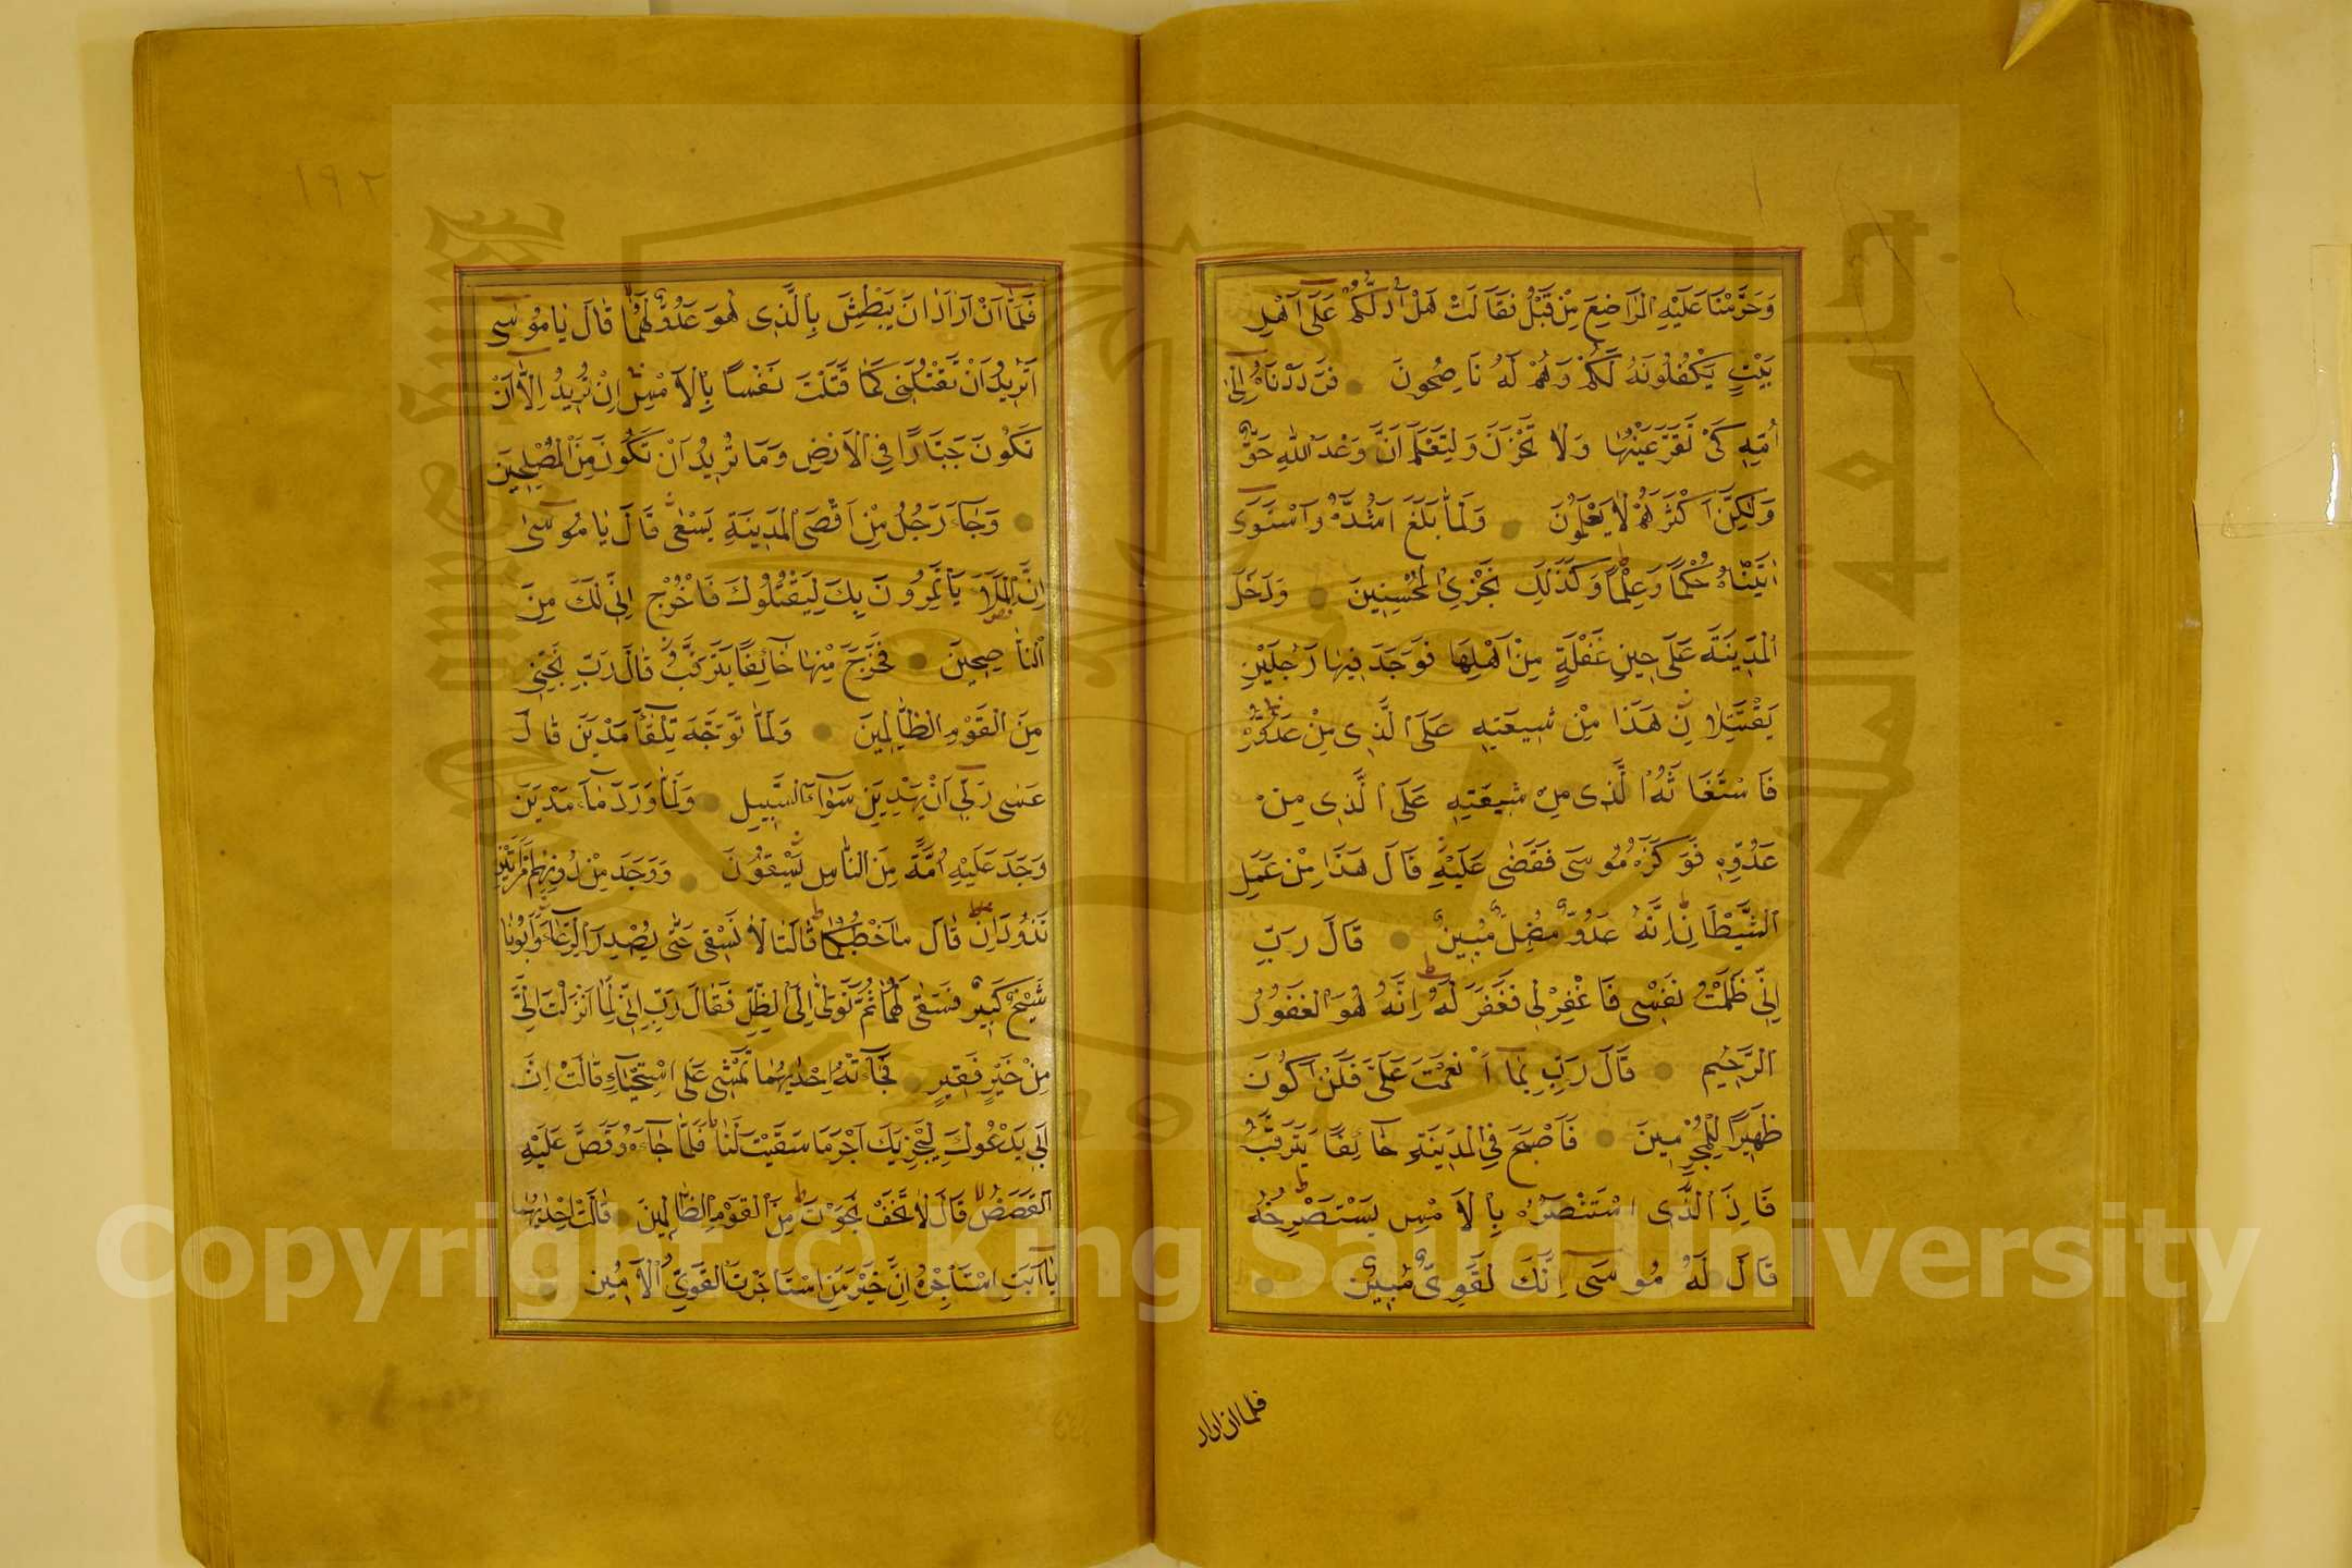 وَحَرَّمْنَا عَلَيْهِ الْمَرَاضِعَ مِنْ قَبْلُ فَقَالَتْ هَلْ أَدُلُّكُمْ عَلَى أَهْلِ
بَيْتٍ يَكْفُلُونَهُ لَكُمْ وَهُمْ لَهُ نَاصِحُونَ فَرَدَدْنَاهُ إِلَى
أُمِّهِ كَيْ تَقَرَّ عَيْنُهَا وَلَا تَحْزَنَ وَلِتَعْلَمَ أَنَّ وَعْدَ اللهِ حَقٌّ
وَلَكِنَّ أَكْثَرَهُمْ لَا يَعْلَمُونَ وَلَمَّا بَلَغَ أَشُدَّهُ وَاسْتَوَى
اٰتَيْنَاهُ حُكْمًا وَعِلْمًا وَكَذَلِكَ نَجْزِي الْمُحْسِنِينَ وَدَخَلَ
الْمَدِينَةَ عَلَى حِينِ غَفْلَةٍ مِنْ أَهْلِهَا فَوَجَدَ فِيهَا رَجُلَيْنِ
يَقْتَتِلَانِ هَذَا مِنْ شِيعَتِهِ عَلَى الَّذِي مِنْ عَدُوِّهِ
فَاسْتَغَاثَهُ الَّذِي مِنْ شِيعَتِهِ عَلَى الَّذِي مِنْ
عَدُوِّهِ فَوَكَزَهُ مُوسَى فَقَضَى عَلَيْهِ قَالَ هَذَا مِنْ عَمَلِ
الشَّيْطَانِ إِنَّهُ عَدُوٌّ مُضِلٌّ مُبِينٌ قَالَ رَبِّ
إِنِّي ظَلَمْتُ نَفْسِي فَاغْفِرْ لِي فَغَفَرَ لَهُ إِنَّهُ هُوَ الْغَفُورُ
الرَّحِيمُ قَالَ رَبِّ بِمَا أَنْعَمْتَ عَلَيَّ فَلَنْ أَكُونَ
ظَهِيرًا لِلْمُجْرِمِينَ فَأَصْبَحَ فِي الْمَدِينَةِ خَائِفًا يَتَرَقَّبُ
فَإِذَ الَّذِي اسْتَنْصَرَهُ بِالْأَمْسِ يَسْتَصْرِخُهُ
قَالَ لَهُ مُوسَى إِنَّكَ لَغَوِيٌّ مُبِينٌ
فلما ان اراد
١٩٢
فَلَمَّا أَنْ أَرَادَ أَنْ يَبْطِشَ بِالَّذِي هُوَ عَدُوٌّ لَهُمَا قَالَ يَا مُوسَى
أَتُرِيدُ أَنْ تَقْتُلَنِي كَمَا قَتَلْتَ نَفْسًا بِالْأَمْسِ إِنْ تُرِيدُ إِلَّا أَنْ
تَكُونَ جَبَّارًا فِي الْأَرْضِ وَمَا تُرِيدُ أَنْ تَكُونَ مِنَ الْمُصْلِحِينَ
وَجَاءَ رَجُلٌ مِنْ أَقْصَى الْمَدِينَةِ يَسْعَى قَالَ يَا مُوسَى
إِنَّ الْمَلَأَ يَأْتَمِرُونَ بِكَ لِيَقْتُلُوكَ فَاخْرُجْ إِنِّي لَكَ مِنَ
النَّاصِحِينَ فَخَرَجَ مِنْهَا خَائِفًا يَتَرَقَّبُ قَالَ رَبِّ نَجِّنِي
مِنَ الْقَوْمِ الظَّالِمِينَ وَلَمَّا تَوَجَّهَ تِلْقَاءَ مَدْيَنَ قَالَ
عَسَى رَبِّي أَنْ يَهْدِيَنِي سَوَاءَ السَّبِيلِ وَلَمَّا وَرَدَ مَاءَ مَدْيَنَ
وَجَدَ عَلَيْهِ أُمَّةً مِنَ النَّاسِ يَسْقُونَ وَوَجَدَ مِنْ دُونِهِمُ امْرَأَتَيْنِ
تَذُودَانِ قَالَ مَا خَطْبُكُمَا قَالَتَا لَا نَسْقِي حَتَّى يُصْدِرَ الرِّعَاءُ وَأَبُونَا
شَيْخٌ كَبِيرٌ فَسَقَى لَهُمَا ثُمَّ تَوَلَّى إِلَى الظِّلِّ فَقَالَ رَبِّ إِنِّي لِمَا أَنْزَلْتَ إِلَيَّ
مِنْ خَيْرٍ فَقِيرٌ فَجَاءَتْهُ إِحْدٰيهُمَا تَمْشِي عَلَى اسْتِحْيَاءٍ قَالَتْ إِنَّ
أَبِي يَدْعُوكَ لِيَجْزِيَكَ أَجْرَ مَا سَقَيْتَ لَنَا فَلَمَّا جَاءَهُ وَقَصَّ عَلَيْهِ
الْقَصَصَ قَالَ لَا تَخَفْ نَجَوْتَ مِنَ الْقَوْمِ الظَّالِمِينَ قَالَتْ إِحْدٰيهُمَا
يَا أَبَتِ اسْتَأْجِرْهُ إِنَّ خَيْرَ مَنِ اسْتَأْجَرْتَ الْقَوِيُّ الْأَمِينُ
Copyright © King Saud University